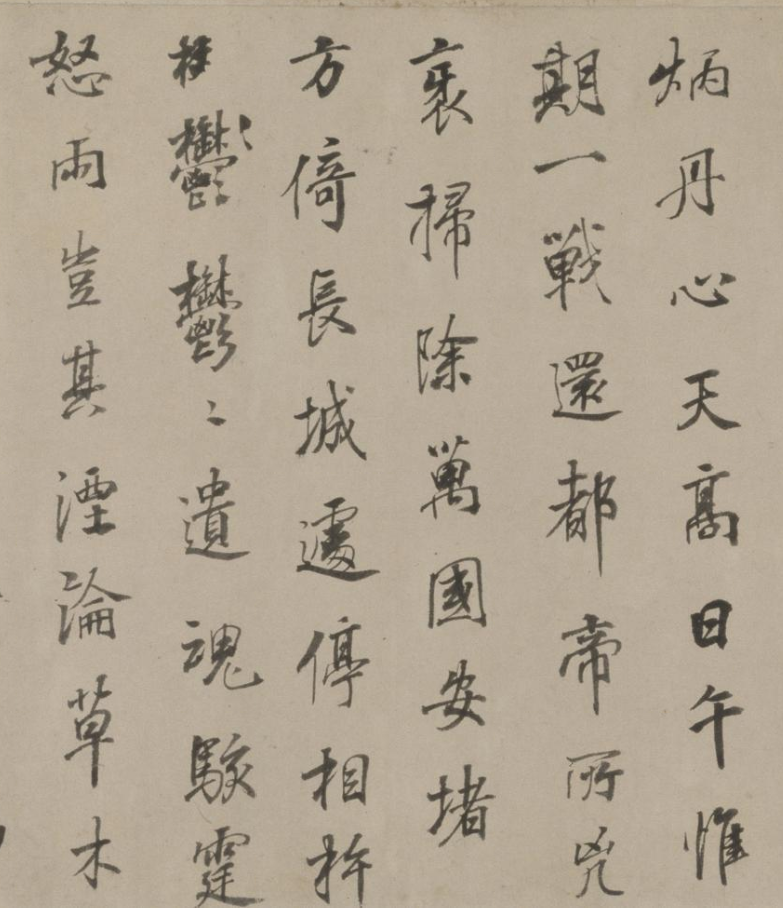 炳丹心天高日午惟
期一戰還都帝所兇
衺掃除萬國安堵
方倚長城遽停相杵
鬱鬱〻遺魂駭霆
怒雨豈其湮淪草木